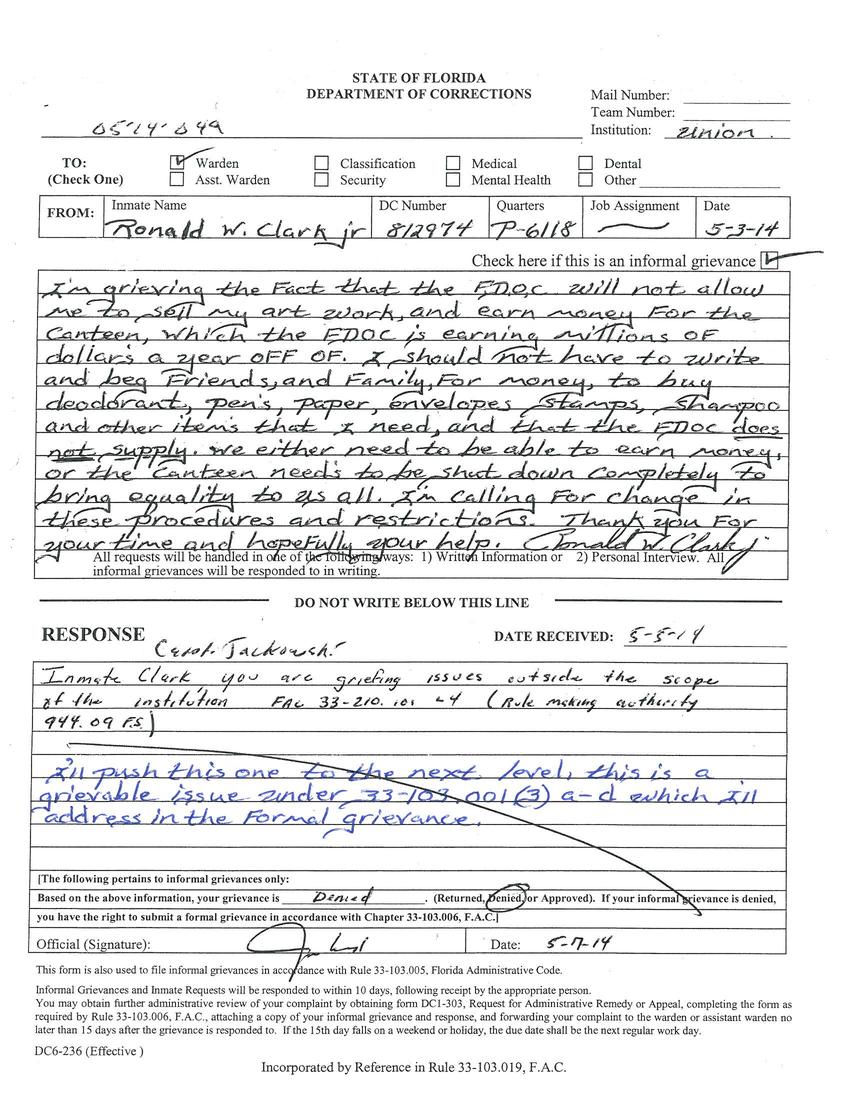 STATE OF FLORIDA
DEPARTMENT OF CORRECTIONS
Mail Number:
Team Number:
Institution: Union
05-14-049
TO: Warden Classification Medical Dental
(Check One) Asst. Warden Security Mental Health Other
FROM: Inmate Name DC Number Quarters Job Assignment Date
Ronald W. Clark jr 812974 P-6118 5-3-14
Check here if this is an informal grievance
I'm grieving the Fact that the F.D.O.C will not allow
me to sell my art work, and earn money For the
Canteen, which the FDOC is earning millions OF
dollar's a year OFF OF. I should not have to write
and beg Friends, and Family, For money, to buy
deodorant, pen's, paper, envelopes stamps, shampoo
and other item's that I need, and that the FDOC does
not supply. we either need to be able to earn money,
or the Canteen need's to be shut down completely to
bring equality to us all. I'm calling For change in
these procedures and restrictions. Thank you For
your time and hopefully your help. Ronald W. Clark jr
All requests will be handled in one of the following ways: 1) Written Information or 2) Personal Interview. All
informal grievances will be responded to in writing.
DO NOT WRITE BELOW THIS LINE
RESPONSE DATE RECEIVED: 5-5-14
Inmate Clark, you are griefing issues outside the scope
of the institution FAC 33-210.101 -4 (Rule making authority
944.09 F.S.)
I'll push this one to the next level, this is a
grievable issue under 33-103.001(3) a-d which I'll
address in the Formal grievance.
[The following pertains to informal grievances only:
Based on the above information, your grievance is Denied. (Returned, Denied, or Approved). If your informal grievance is denied,
you have the right to submit a formal grievance in accordance with Chapter 33-103.006, F.A.C.]
Official (Signature): Date: 5-7-14
This form is also used to file informal grievances in accordance with Rule 33-103.005, Florida Administrative Code.
Informal Grievances and Inmate Requests will be responded to within 10 days, following receipt by the appropriate person.
You may obtain further administrative review of your complaint by obtaining form DC1-303, Request for Administrative Remedy or Appeal, completing the form as
required by Rule 33-103.006, F.A.C., attaching a copy of your informal grievance and response, and forwarding your complaint to the warden or assistant warden no
later than 15 days after the grievance is responded to. If the 15th day falls on a weekend or holiday, the due date shall be the next regular work day.
DC6-236 (Effective )
Incorporated by Reference in Rule 33-103.019, F.A.C.